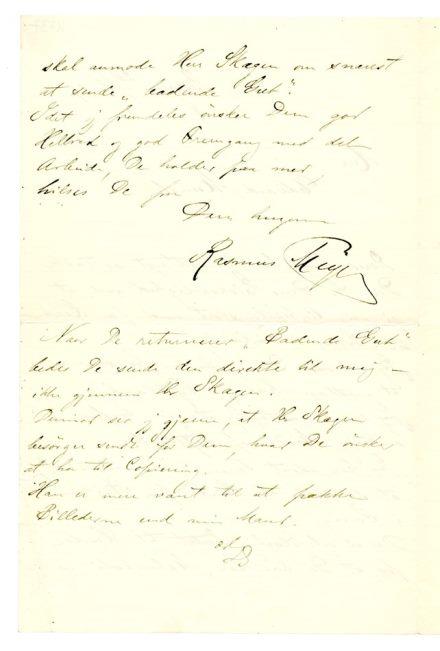 skal anmode Herr Skagen om snarest
at sende „badende Gut".
Idet jeg fremdeles ønsker Dem god
Helbred og god Fremgang med det
Arbeide, De holder paa med,
hilses De fra
Deres
Rasmus Meyer
Naar De returnerer „Badende Gut"
bedes De sende den direkte til mig —
ikke gjennem Hr Skagen.
Derimod ser jeg gjerne, at Hr Skagen
besørger sendt for Dem, hvad De ønsker
at ha til Copiering.
Han er mere vant til at pakke
Billederne end min Mand.